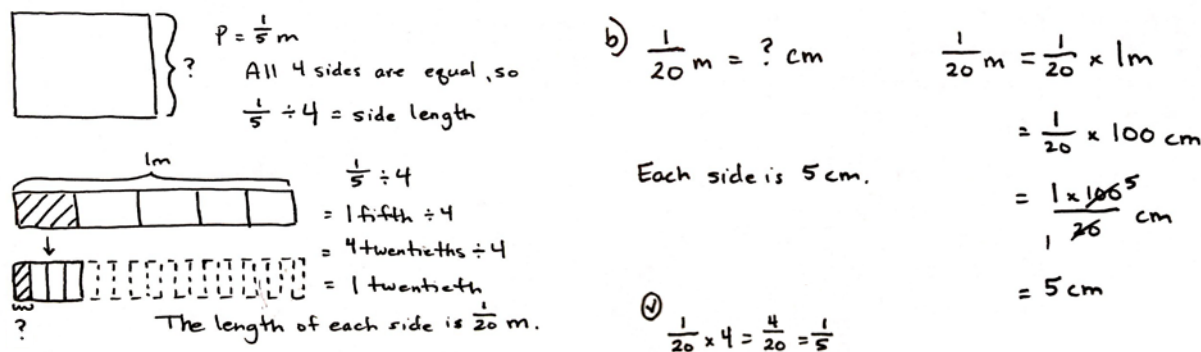 P = 1/5 m
?
All 4 sides are equal, so
1/5 ÷ 4 = side length
1m
1/5 ÷ 4
= 1 fifth ÷ 4
= 4 twentieths ÷ 4
= 1 twentieth
?
The length of each side is 1/20 m.
b) 1/20 m = ? cm
Each side is 5 cm.
1/20 m = 1/20 × 1m
= 1/20 × 100 cm
= 1 × 100 5 / 20 1 cm
= 5 cm
✓
1/20 × 4 = 4/20 = 1/5